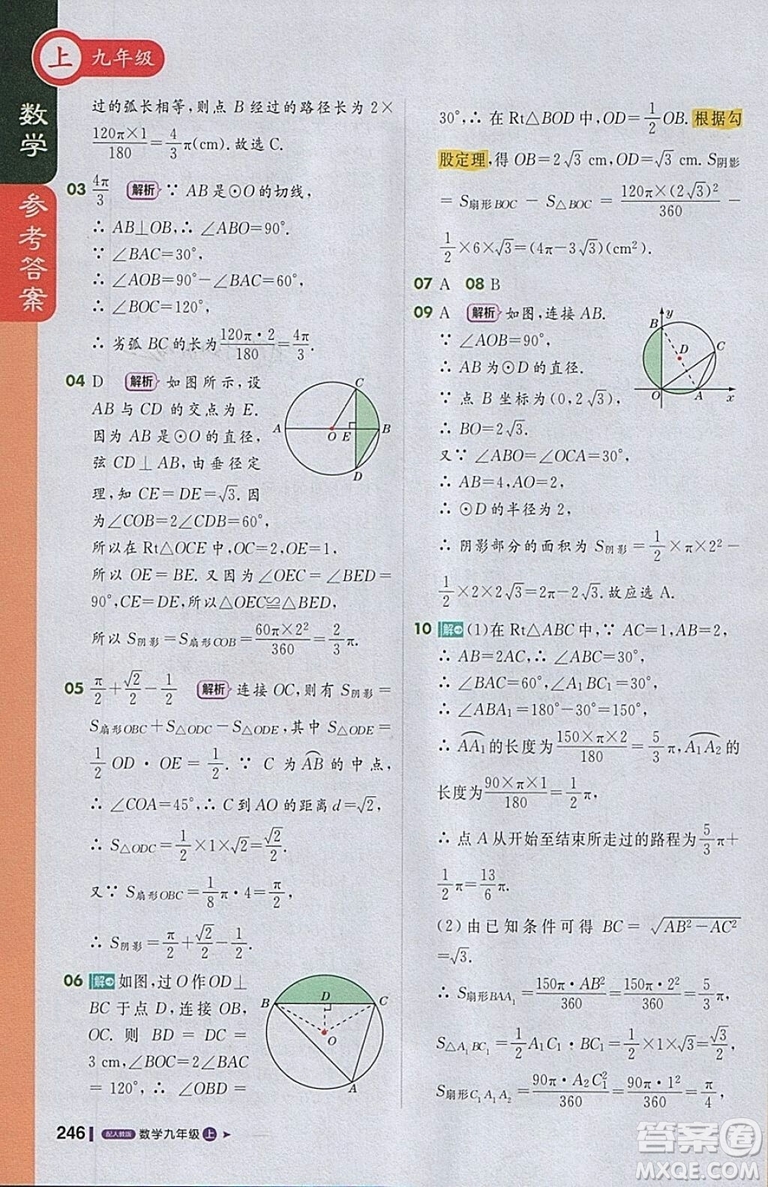 上 九年级
数学
参考答案
过的弧长相等，则点 B 经过的路径长为 2×
120π×1/180 = 4/3 π(cm). 故选 C.
03 4π/3 解析 ∵ AB 是⊙O 的切线，
∴ AB⊥OB，∴ ∠ABO=90°.
∵ ∠BAC=30°，
∴ ∠AOB=90°-30°=60°，
∴ ∠BOC=120°，
∴ 劣弧 BC 的长为 120π·2/180 = 4π/3.
04 D 解析 如图所示，设
AB 与 CD 的交点为 E.
因为 AB 是⊙O 的直径，
弦 CD⊥AB，由垂径定
理，知 CE=DE=√3. 因
为∠COB=2∠CDB=60°，
所以在 Rt△OCE 中，OE=1，
所以 OE=BE. 又因为 ∠OEC=∠BED=
90°，CE=DE，所以△OEC≌△BED，
所以 S阴影=S扇形COB=60π×2²/360=2/3 π.
A O E B C D
05 π/2+√2/2-1/2 解析 连接 OC，则有 S阴影=
S扇形OBC+S△ODC-S△ODE，其中 S△ODE=
1/2 OD·OE=1/2. ∵ C 为 A͡B 的中点，
∴ ∠COA=45°，∴ C 到 AO 的距离 d=√2，
∴ S△ODC=1/2×1×√2=√2/2.
又∵ S扇形OBC=1/8 π·4=π/2，
∴ S阴影=π/2+√2/2-1/2.
06 解 如图，过 O 作 OD⊥
BC 于点 D，连接 OB，
OC. 则 BD=DC=
3 cm，∠BOD=∠COD
=120°，∴ ∠OBD=
B D C O A
246 配人教版 数学九年级 上
30°，∴ 在 Rt△BOD 中，OD=1/2 OB. 根据勾
股定理，得 OB=2√3 cm，OD=√3 cm. S阴影
=S扇形BOC-S△BOC=120π×(2√3)²/360-
1/2×6×√3=(4π-3√3)(cm²).
07 A 08 B
09 A 解析 如图，连接 AB.
∵ ∠AOB=90°，
∴ AB 为⊙D 的直径.
∵ 点 B 坐标为(0，2√3)，
∴ BO=2√3.
又∵ ∠ABO=∠OCA=30°，
∴ AB=4，AO=2，
∴ ⊙D 的半径为 2，
∴ 阴影部分的面积为 S阴影=1/2×π×2²-
1/2×2×2√3=2π-2√3. 故应选 A.
y B C D O A x
10 解 (1)在 Rt△ABC 中，∵ AC=1，AB=2，
∴ AB=2AC，∴ ∠ABC=30°，
∴ ∠ABA₁=180°-30°=150°，
∴ A͡A₁ 的长度为 150×π×2/180=5/3 π，A₁͡A₂ 的
长度为 90×π×1/180=1/2 π，
∴ 点 A 从开始至结束所走过的路程为 5/3 π+
1/2 π=13/6 π.
(2) 由已知条件可得 BC=√(AB²-AC²)
=√3.
∴ S扇形BAA₁=150π·AB²/360=150π·2²/360=5π/3，
S△A₁BC₁=1/2 A₁C₁·BC₁=1/2×1×√3=√3/2，
S扇形C₁A₁A₂=90π·A₂C₁²/360=90π·1²/360=π/4.
答案圈
MXQE.COM